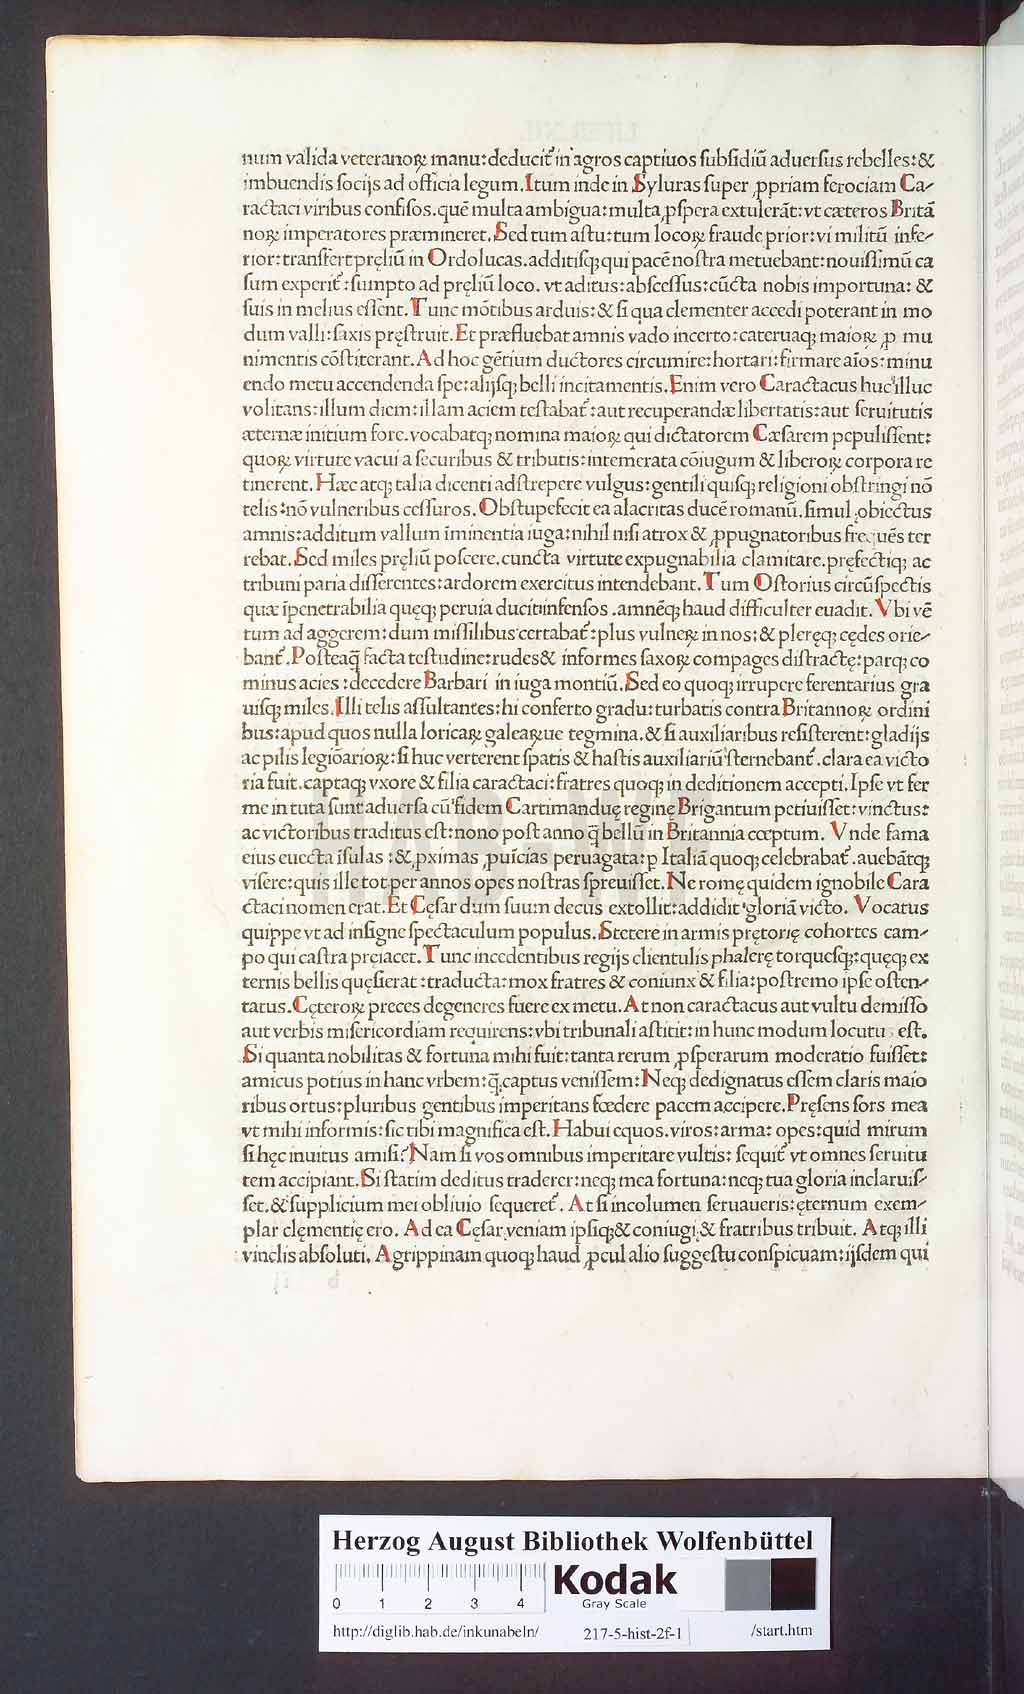 num valida veteranoꝝ manu: deducit᷑ in agros captiuos subsidiũ aduersus rebelles: &
imbuendis socijs ad officia legum. Itum inde in Syluras super ꝓpriam ferociam Ca-
ractaci viribus confisos. quẽ multa ambigua: multa ꝓspera extulerãt: vt cæteros Britã
noꝝ imperatores præmineret. Sed tum astu: tum locoꝝ fraude prior: vi militũ infe-
rior: transfert pręliũ in Ordolucas. additisq; qui pacẽ nostra metuebant: nouissimũ ca
sum experit᷑: sumpto ad pręliũ loco. vt aditus: abscessus: cũcta nobis importuna: &
suis in melius essent. Tunc mõtibus arduis: & si qua clementer accedi poterant in mo
dum valli: saxis pręstruit. Et præfluebat amnis vado incerto: cateruaq; maioꝝ ꝓ mu
nimentis cõstiterant. Ad hoc gẽtium ductores circumire: hortari: firmare aĩos: minu
endo metu accendenda spe: alijsq; belli incitamentis. Enim vero Caractacus huc illuc
volitans: illum diem: illam aciem testabat᷑: aut recuperandæ libertatis: aut seruitutis
æternæ initium fore. vocabatq; nomina maioꝝ qui dictatorem Cæsarem pepulissent:
quoꝝ virtute vacui a securibus & tributis: intemerata cõiugum & liberoꝝ corpora re
tinerent. Hæc atq; talia dicenti adstrepere vulgus: gentili quisq; religioni obstringi nõ
telis: nõ vulneribus cessuros. Obstupefecit ea alacritas ducẽ romanũ. simul obiectus
amnis: additum vallum ĩminentia iuga: nihil nisi atrox & ꝓpugnatoribus frequẽs ter
rebat. Sed miles pręliũ poscere. cuncta virtute expugnabilia clamitare. pręfectiq; ac
tribuni paria disserentes: ardorem exercitus intendebant. Tum Ostorius circũspectis
quæ ĩpenetrabilia quęq; peruia ducit infensos. amnẽq; haud difficulter euadit. Vbi vẽ
tum ad aggerem: dum missilibus certabat᷑: plus vulneꝝ in nos: & pleręq; cędes orie-
bant᷑. Posteaq̃ facta testudine: rudes & informes saxoꝝ compages distractę: parq; co
minus acies: decedere Barbari in iuga montiũ. Sed eo quoq; irrupere ferentarius gra
uisq; miles. Illi telis assultantes: hi conferto gradu: turbatis contra Britannoꝝ ordini
bus: apud quos nulla loricaꝝ galeaꝝue tegmina. & si auxiliaribus resisterent: gladijs
ac pilis legiõarioꝝ: si huc verterent spatis & hastis auxiliariũ sternebant᷑. clara ea victo
ria fuit. captaq; vxore & filia caractaci: fratres quoq; in deditionem accepti. Ipse vt fer
me in tuta sunt aduersa cũ fidem Cartimanduę reginę Brigantum petiuisset: vinctus:
ac victoribus traditus est: nono post anno q̃ bellũ in Britannia cœptum. Vnde fama
eius euecta ĩsulas: & ꝓximas ꝓuĩcias peruagata: p Italiã quoq; celebrabat᷑. auebãtq;
visere: quis ille tot per annos opes nostras spreuisset. Ne romę quidem ignobile Cara
ctaci nomen erat. Et Cęsar dum suum decus extollit: addidit gloriã victo. Vocatus
quippe vt ad insigne spectaculum populus. Stetere in armis pretorię cohortes cam-
po qui castra pręiacet. Tunc incedentibus regijs clientulis phalerę torquesq;: quęq; ex
ternis bellis quęsierat: traducta: mox fratres & coniunx & filia: postremo ipse osten-
tatus. Cęteroꝝ preces degeneres fuere ex metu. At non caractacus aut vultu demisso
aut verbis misericordiam requirens: vbi tribunali astitit: in hunc modum locutus est.
Si quanta nobilitas & fortuna mihi fuit: tanta rerum ꝓsperarum moderatio fuisset:
amicus potius in hanc vrbem: q̃ captus venissem: Neq; dedignatus essem claris maio
ribus ortus: pluribus gentibus imperitans fœdere pacem accipere. Pręsens sors mea
vt mihi informis: sic tibi magnifica est. Habui equos. viros: arma: opes: quid mirum
si hęc inuitus amisi? Nam si vos omnibus imperitare vultis: sequit᷑ vt omnes seruitu
tem accipiant. Si statim deditus traderer: neq; mea fortuna: neq; tua gloria inclaruis-
set. & supplicium mei obliuio sequeret᷑. At si incolumen seruaueris: ęternum exem-
plar clęmentię ero. Ad ea Cęsar veniam ipsiq; & coniugi & fratribus tribuit. Atq; illi
vinclis absoluti. Agrippinam quoq; haud ꝓcul alio suggestu conspicuam: ijsdem qui
HAB-WF
Herzog August Bibliothek Wolfenbüttel
0 1 2 3 4
Kodak
Gray Scale
http://diglib.hab.de/inkunabeln/ 217-5-hist-2f-1 /start.htm